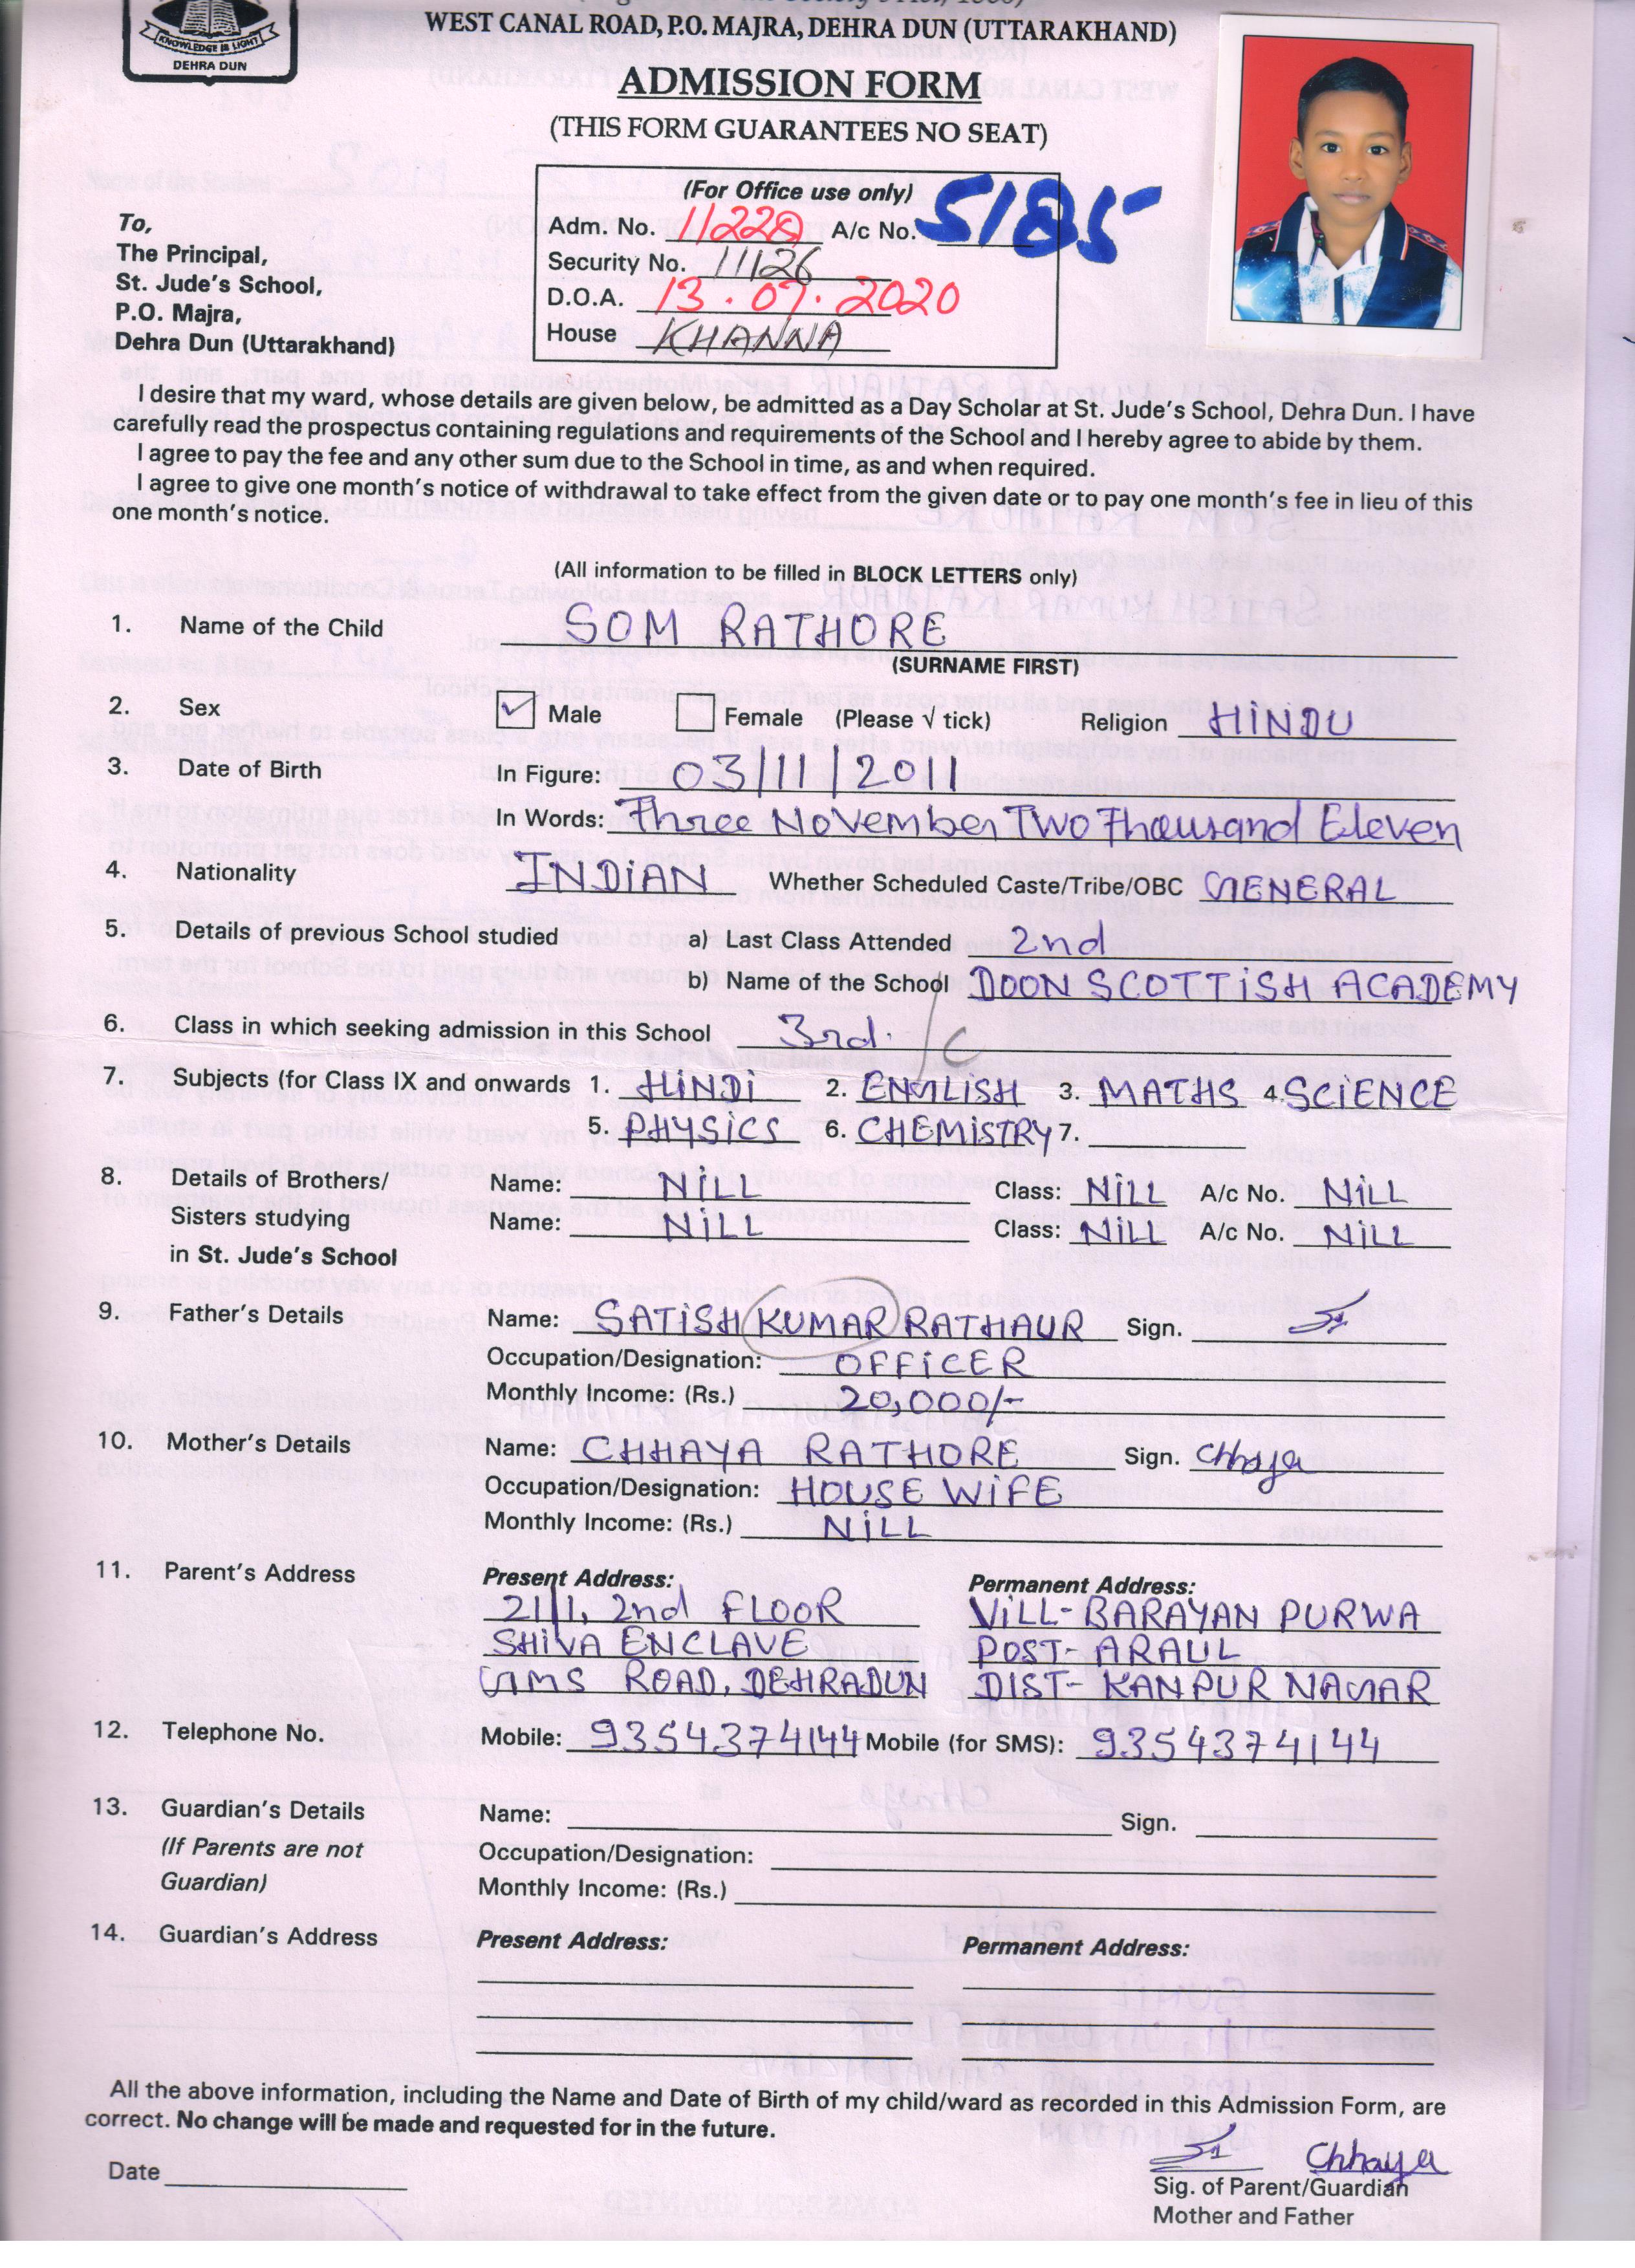 KNOWLEDGE IS LIGHT
DEHRA DUN
WEST CANAL ROAD, P.O. MAJRA, DEHRA DUN (UTTARAKHAND)
ADMISSION FORM
(THIS FORM GUARANTEES NO SEAT)
(For Office use only)
Adm. No. 11228 A/c No. 5185
Security No. 11126
D.O.A. 13.07.2020
House KHANNA
To,
The Principal,
St. Jude's School,
P.O. Majra,
Dehra Dun (Uttarakhand)
I desire that my ward, whose details are given below, be admitted as a Day Scholar at St. Jude's School, Dehra Dun. I have
carefully read the prospectus containing regulations and requirements of the School and I hereby agree to abide by them.
I agree to pay the fee and any other sum due to the School in time, as and when required.
I agree to give one month's notice of withdrawal to take effect from the given date or to pay one month's fee in lieu of this
one month's notice.
(All information to be filled in BLOCK LETTERS only)
1. Name of the Child SOM RATHORE
(SURNAME FIRST)
2. Sex Male Female (Please √ tick) Religion HINDU
3. Date of Birth In Figure: 03/11/2011
In Words: Three November Two Thousand Eleven
4. Nationality INDIAN Whether Scheduled Caste/Tribe/OBC GENERAL
5. Details of previous School studied a) Last Class Attended 2nd
b) Name of the School DOON SCOTTISH ACADEMY
6. Class in which seeking admission in this School 3rd. / C
7. Subjects (for Class IX and onwards 1. HINDI 2. ENGLISH 3. MATHS 4. SCIENCE
5. PHYSICS 6. CHEMISTRY 7.
8. Details of Brothers/ Name: NILL Class: NILL A/c No. NILL
Sisters studying Name: NILL Class: NILL A/c No. NILL
in St. Jude's School
9. Father's Details Name: SATISH KUMAR RATHAUR Sign.
Occupation/Designation: OFFICER
Monthly Income: (Rs.) 20,000/-
10. Mother's Details Name: CHHAYA RATHORE Sign. Chhaya
Occupation/Designation: HOUSE WIFE
Monthly Income: (Rs.) NILL
11. Parent's Address Present Address: Permanent Address:
21/1, 2nd FLOOR VILL- BARAYAN PURWA
SHIVA ENCLAVE POST- ARAUL
GMS ROAD, DEHRADUN DIST- KANPUR NAGAR
12. Telephone No. Mobile: 9354374144 Mobile (for SMS): 9354374144
13. Guardian's Details Name: Sign.
(If Parents are not Occupation/Designation:
Guardian) Monthly Income: (Rs.)
14. Guardian's Address Present Address: Permanent Address:
All the above information, including the Name and Date of Birth of my child/ward as recorded in this Admission Form, are
correct. No change will be made and requested for in the future.
Chhaya
Date
Sig. of Parent/Guardian
Mother and Father